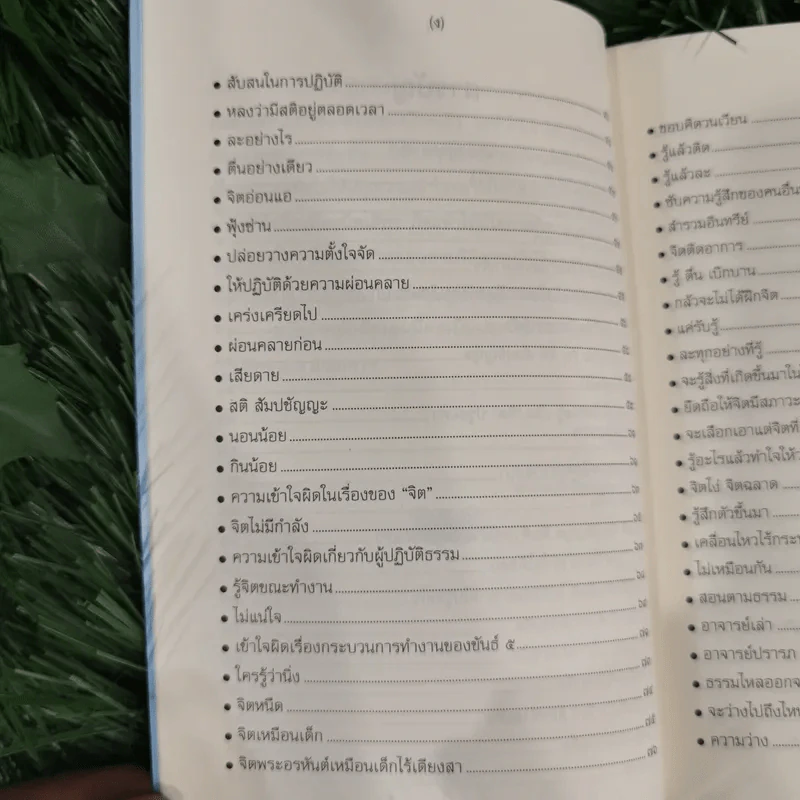 (ง)
• สับสนในการปฏิบัติ
• หลงว่ามีสติอยู่ตลอดเวลา
• ละอย่างไร
• ตื่นอย่างเดียว
• จิตอ่อนแอ
• ฟุ้งซ่าน
• ปล่อยวางความตั้งใจจัด
• ให้ปฏิบัติด้วยความผ่อนคลาย
• เคร่งเครียดไป
• ผ่อนคลายก่อน
• เสียดาย
• สติ สัมปชัญญะ
• นอนน้อย
• กินน้อย
• ความเข้าใจผิดในเรื่องของ “จิต”
• จิตไม่มีกำลัง
• ความเข้าใจผิดเกี่ยวกับผู้ปฏิบัติธรรม
• รู้จิตขณะทำงาน
• ไม่แน่ใจ
• เข้าใจผิดเรื่องกระบวนการทำงานของขันธ์ ๕
• ใครรู้ว่านิ่ง
• จิตหนืด
• จิตเหมือนเด็ก
• จิตพระอรหันต์เหมือนเด็กไร้เดียงสา
• ชอบคิดวนเวียน
• รู้แล้วติด
• รู้แล้วละ
• ซับความรู้สึกของคนอื่น
• สำรวมอินทรีย์
• จิตติดอาการ
• รู้ ตื่น เบิกบาน
• กลัวจะไม่ได้ฝึกจิต
• แค่รับรู้
• ละทุกอย่างที่รู้
• จะรู้สิ่งที่เกิดขึ้นมาใน
• ยึดถือให้จิตมีสภาวะ
• จะเลือกเอาแต่จิตที่
• รู้อะไรแล้วทำใจให้
• จิตโง่ จิตฉลาด
• รู้สึกตัวขึ้นมา
• เคลื่อนไหวไร้กระ
• ไม่เหมือนกัน
• สอนตามธรรม
• อาจารย์เล่า
• อาจารย์ปรารภ
• ธรรมไหลออกจ
• จะว่างไปถึงไหน
• ความว่าง